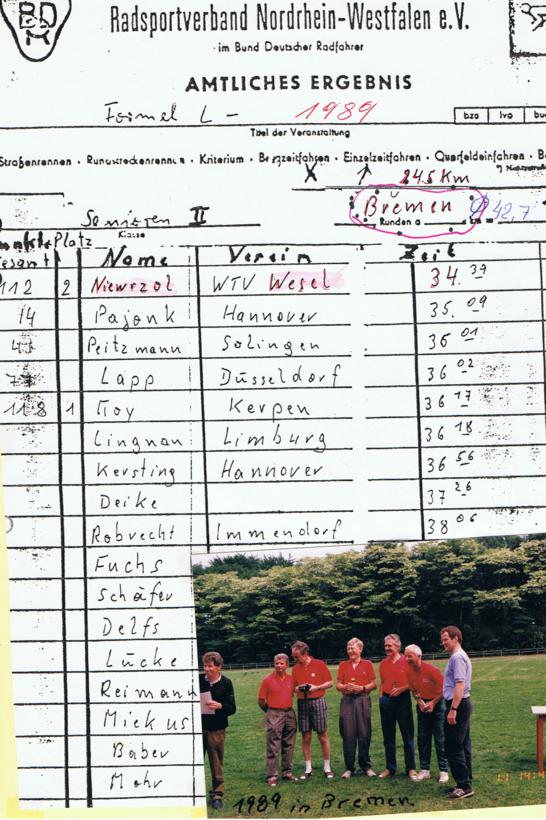 BD
R
Radsportverband Nordrhein-Westfalen e.V.
im Bund Deutscher Radfahrer
AMTLICHES ERGEBNIS
Formel L - 1989
bzo lvo
Titel der Veranstaltung
Straßenrennen · Rundstreckenrennen · Kriterium · Bergzeitfahren · Einzelzeitfahren · Querfeldeinfahren ·
X 24.5 Km
Bremen 42,7
Senioren II Runden a
Klasse
Platz Name Verein Zeit
112 2 Niewrzol WTV Wesel 34.39
14 Pajonk Hannover 35.09
Peitzmann Solingen 36 01
Lapp Düsseldorf 36 02
118 1 Troy Kerpen 36 17
Lingnau Limburg 36 18
Kersting Hannover 36 56
Deike 37 26
Robrecht Immendorf 38 06
Fuchs
Schäfer
Delfs
Lücke
Reimann
Mickus
Baber
Mohr
1989 in Bremen